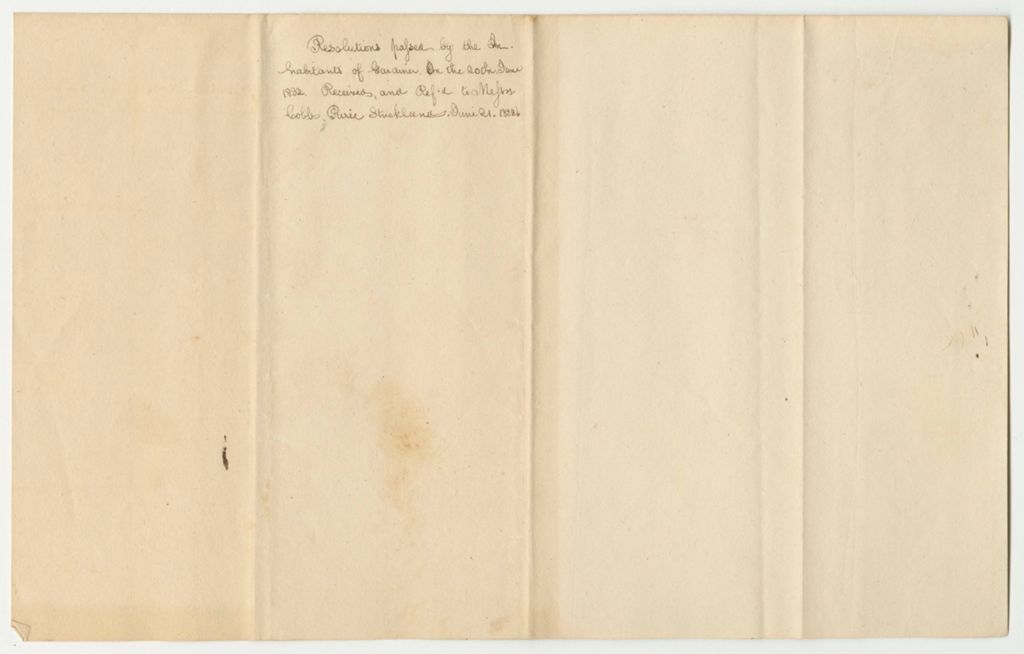 Resolutions passed by the In-
habitants of Gardiner, On the 20th June
1832. Received, and Ref'd to Messrs.
Cobb, Strickland. June 21. 1832